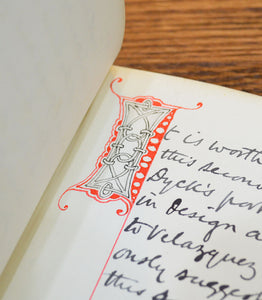 It is worth
this second
Dyck's por
in design a
to Velazquez
ously sugges
this a